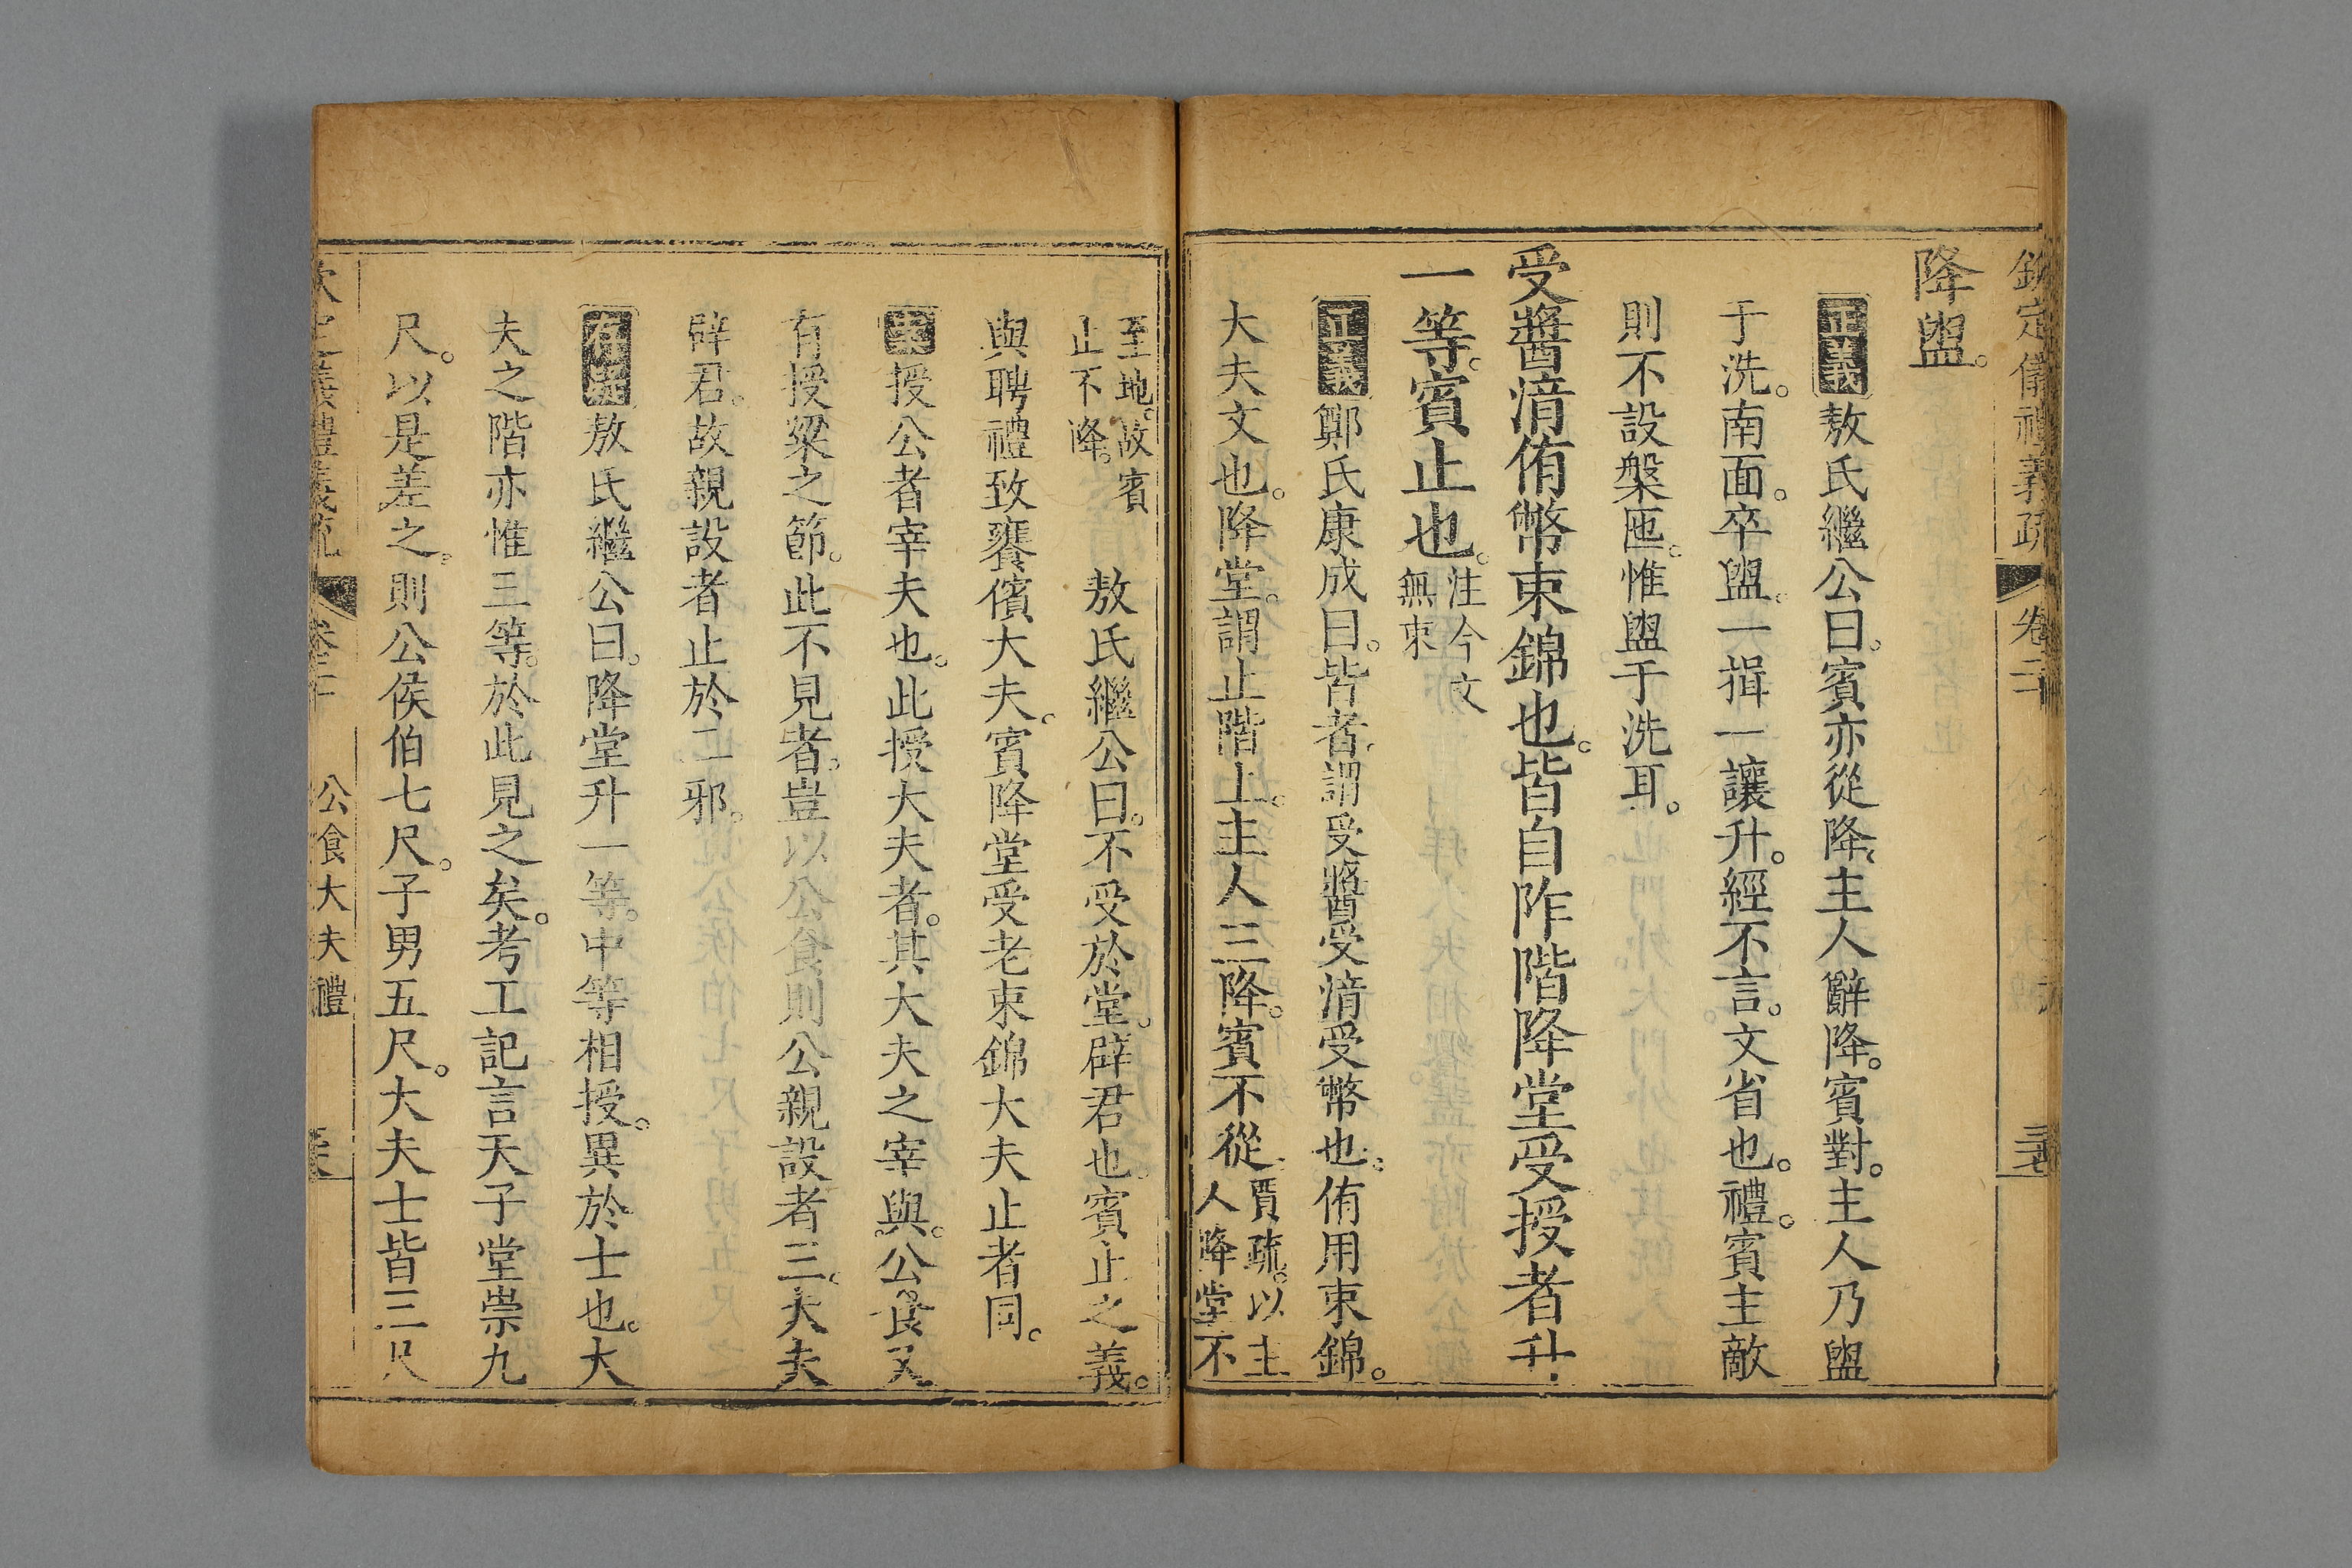 欽定儀禮義疏 卷二十 三七
降盥。
正義敖氏繼公曰。賓亦從降。主人辭降。賓對。主人乃盥
于洗。南面。卒盥。一揖一讓升。經不言。文省也。禮。賓主敵
則不設槃匜。惟盥于洗耳。
受醬湆侑幣束錦也。皆自阼階降堂受授者升
一等。賓止也。注今文無束
正義鄭氏康成曰。皆者謂受醬受湆受幣也。侑用束錦。
大夫文也。降堂。謂止階上。主人三降。賓不從。賈疏。以主人降堂不
至地。故賓止不降。 敖氏繼公曰。不受於堂。辟君也。賓止之義。
與聘禮致饔儐大夫。賓降堂受老束錦大夫止者同。
案授公者宰夫也。此授大夫者。其大夫之宰與。公食又
有授粱之節。此不見者。豈以公食則公親設者三。大夫
辟君。故親設者止於二邪。
存疑敖氏繼公曰。降堂升一等。中等相授。異於士也。大
夫之階亦惟三等。於此見之矣。考工記言天子堂崇九
尺。以是差之。則公侯伯七尺。子男五尺。大夫士皆三尺
欽定儀禮義疏 卷二十 公食大夫禮